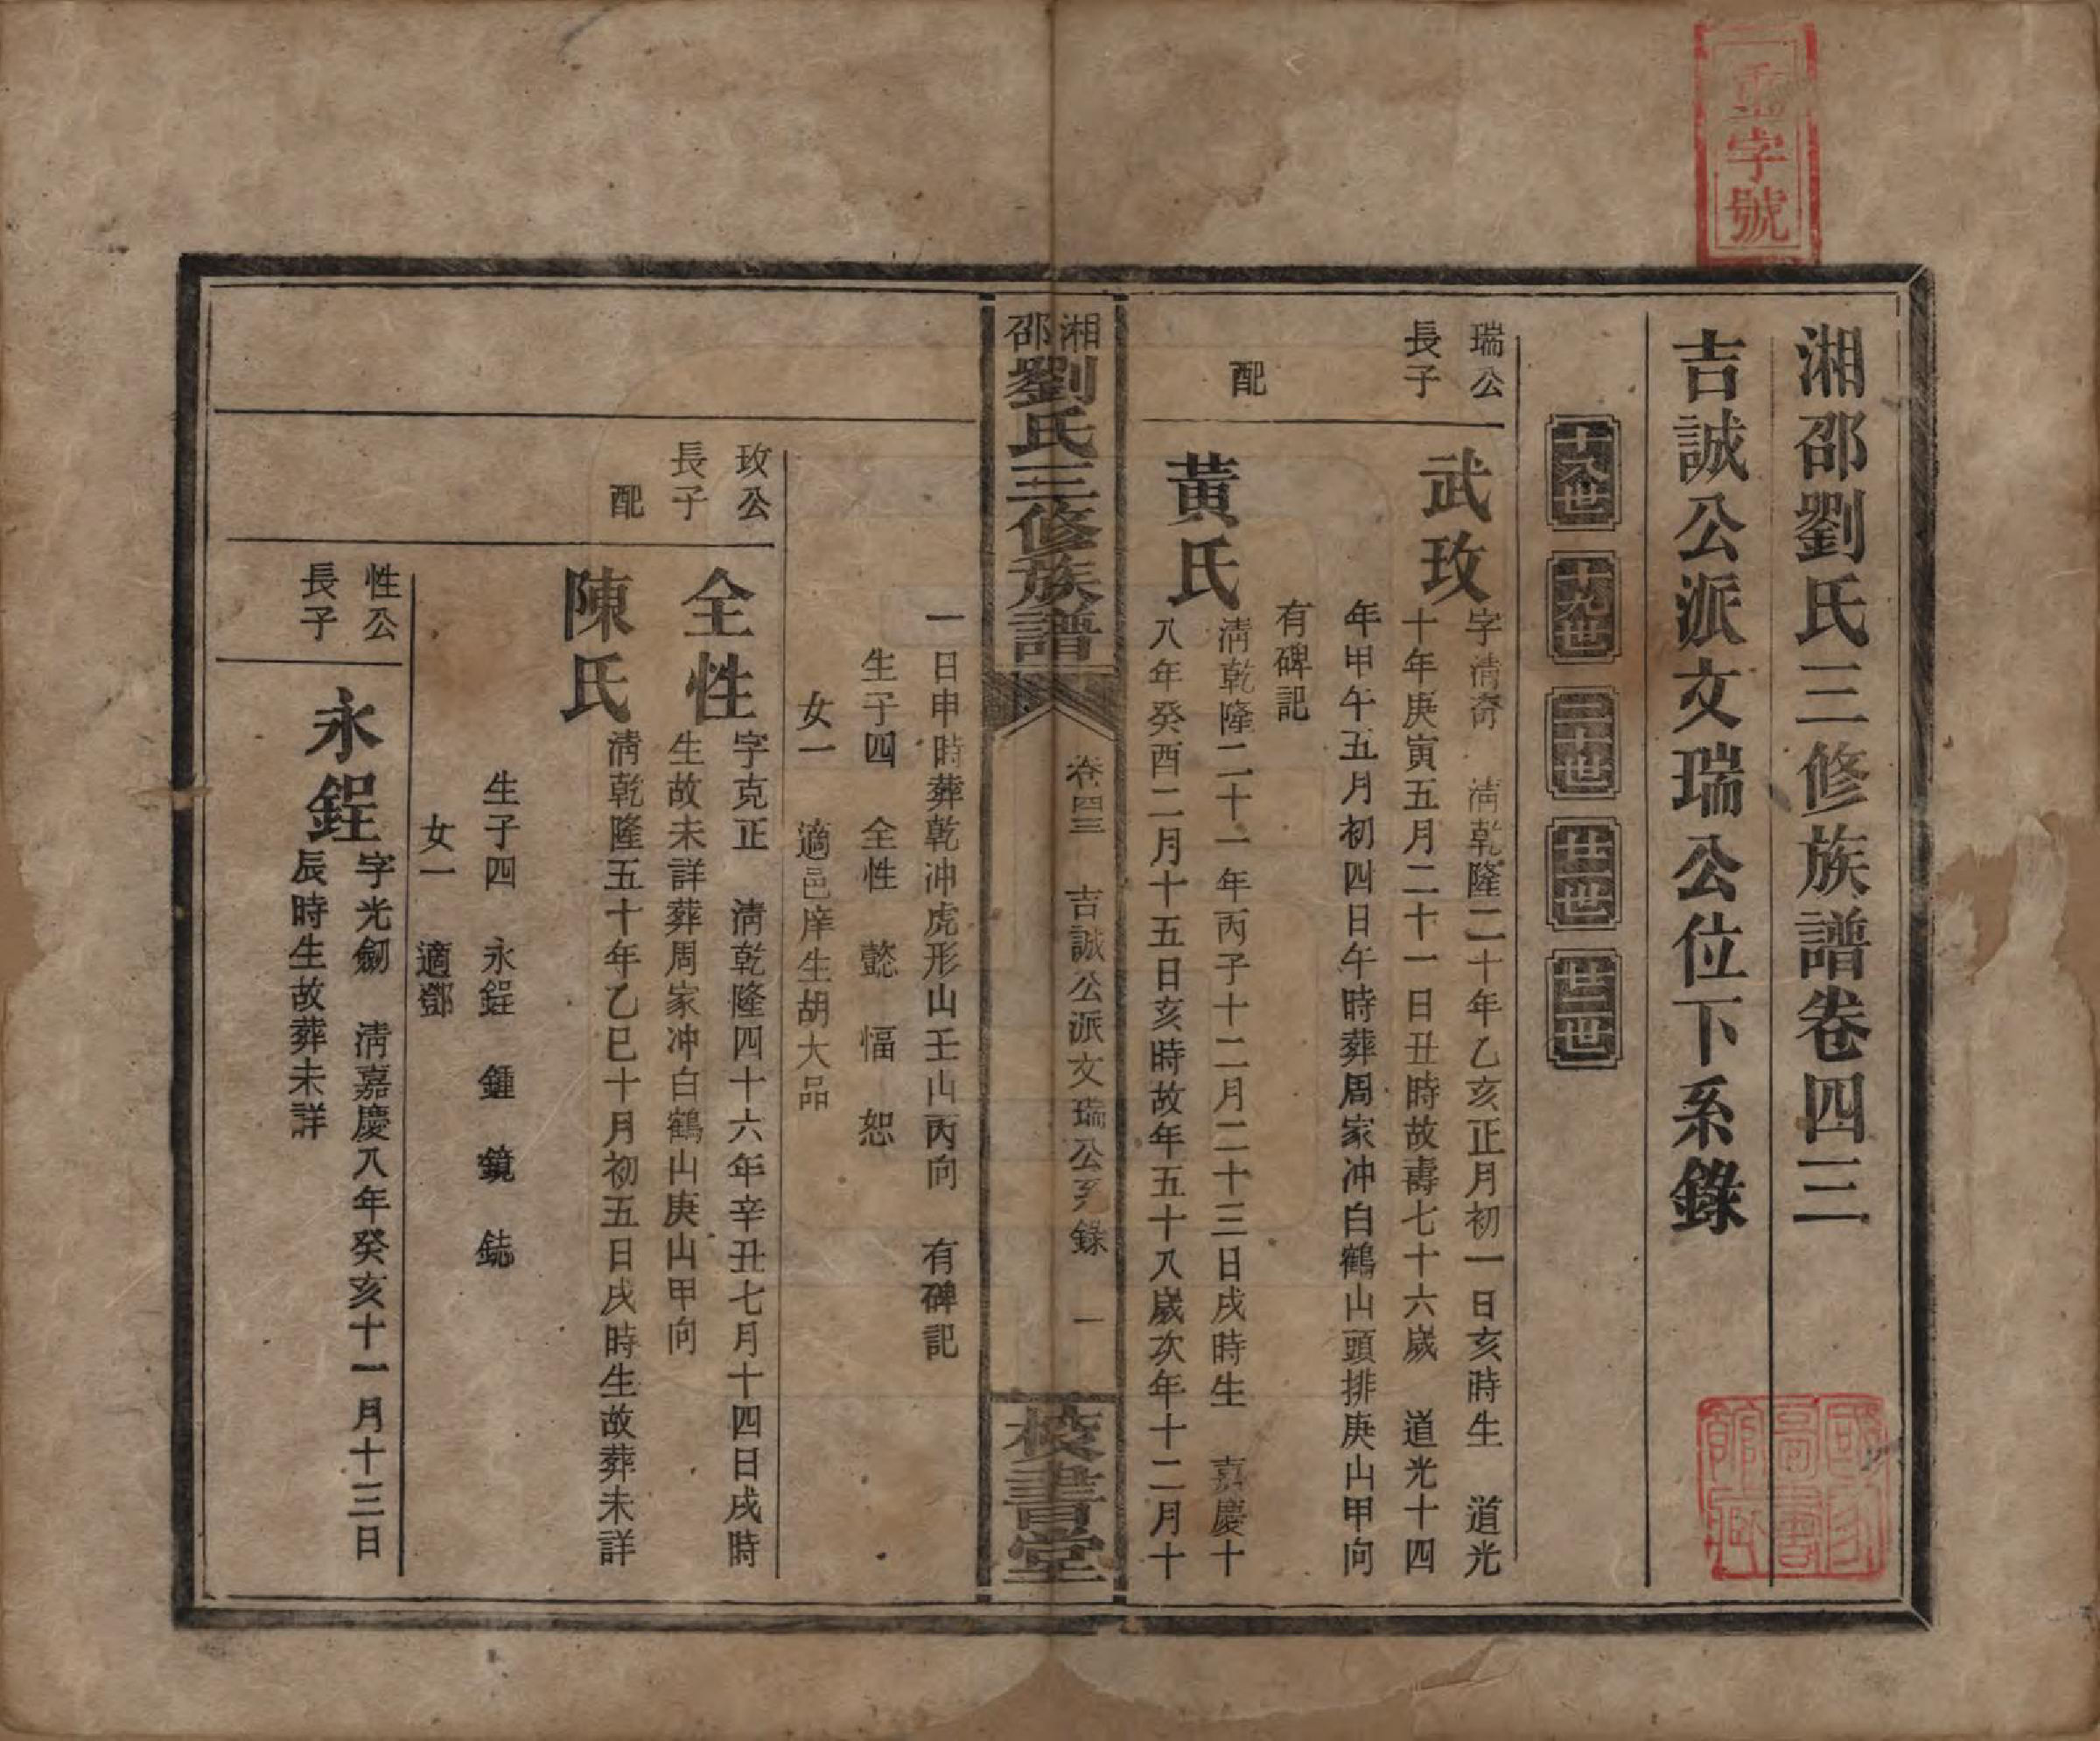 字號
湘邵劉氏三修族譜卷四三
吉誠公派文瑞公位下系錄
十八世 十九世 二十世 廿一世 廿二世
瑞公
長子
武玫
字清奇 清乾隆二十年乙亥正月初一日亥時生 道光
十年庚寅五月二十一日丑時故壽七十六歲 道光十四
年甲午五月初四日午時葬周家冲白鶴山頭排庚山甲向
有碑記
配
黃氏
清乾隆二十一年丙子十二月二十三日戌時生 嘉慶十
八年癸酉二月十五日亥時故年五十八歲次年十二月十
湘邵劉氏三修族譜
卷四三 吉誠公派文瑞公系錄 一
校書堂
一日申時葬乾冲虎形山壬山丙向 有碑記
生子四 全性 懿 愊 恕
女一 適邑庠生胡大品
玫公
長子
全性
字克正 清乾隆四十六年辛丑七月十四日戌時
生故未詳葬周家冲白鶴山庚山甲向
配
陳氏
清乾隆五十年乙巳十月初五日戌時生故葬未詳
生子四 永鋥 鍾 鏡 鋕
女一 適鄧
性公
長子
永鋥
字光劒 清嘉慶八年癸亥十一月十三日
辰時生故葬未詳